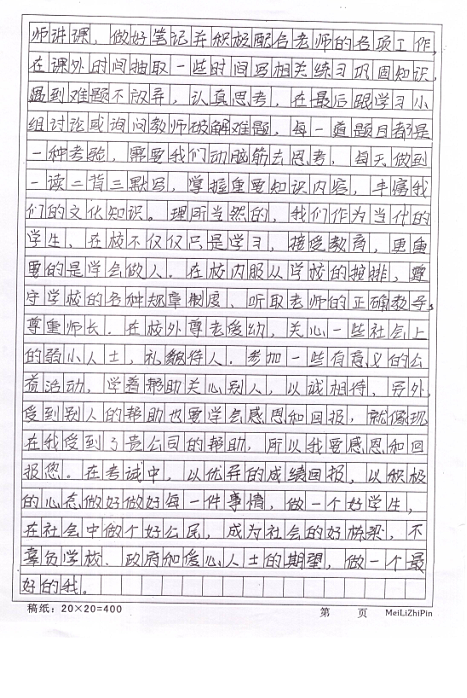 师讲课，做好笔记并积极配合老师的各项工作，
在课外时间抽取一些时间写相关练习巩固知识，
遇到难题不放弃，认真思考，在最后跟学习小
组讨论或询问教师破解难题，每一道题目都是
一种考验，需要我们动脑筋去思考，每天做到
一读二背三默写，掌握重要知识内容，丰富我
们的文化知识。理所当然的，我们作为当代的
学生，在校不仅仅只是学习，接受教育，更重
要的是学会做人．在校内服从学校的按排，遵
守学校的各种规章制度、听取老师的正确教导，
尊重师长．在校外尊老爱幼，关心一些社会上
的弱小人士，礼貌待人．参加一些有意义的公
益活动，学着帮助关心别人，以诚相待，另外，
受到别人的帮助也要学会感恩和回报，就像现
在我受到了贵公司的帮助，所以我要感恩和回
报您．在考试中，以优异的成绩回报，以积极
的心态做好做好每一件事情，做一个好学生，
在社会中做个好公民，成为社会的好栋梁，不
辜负学校、政府和爱心人士的期望，做一个最
好的我。
稿纸：20×20=400 第 页 MeiLiZhiPin